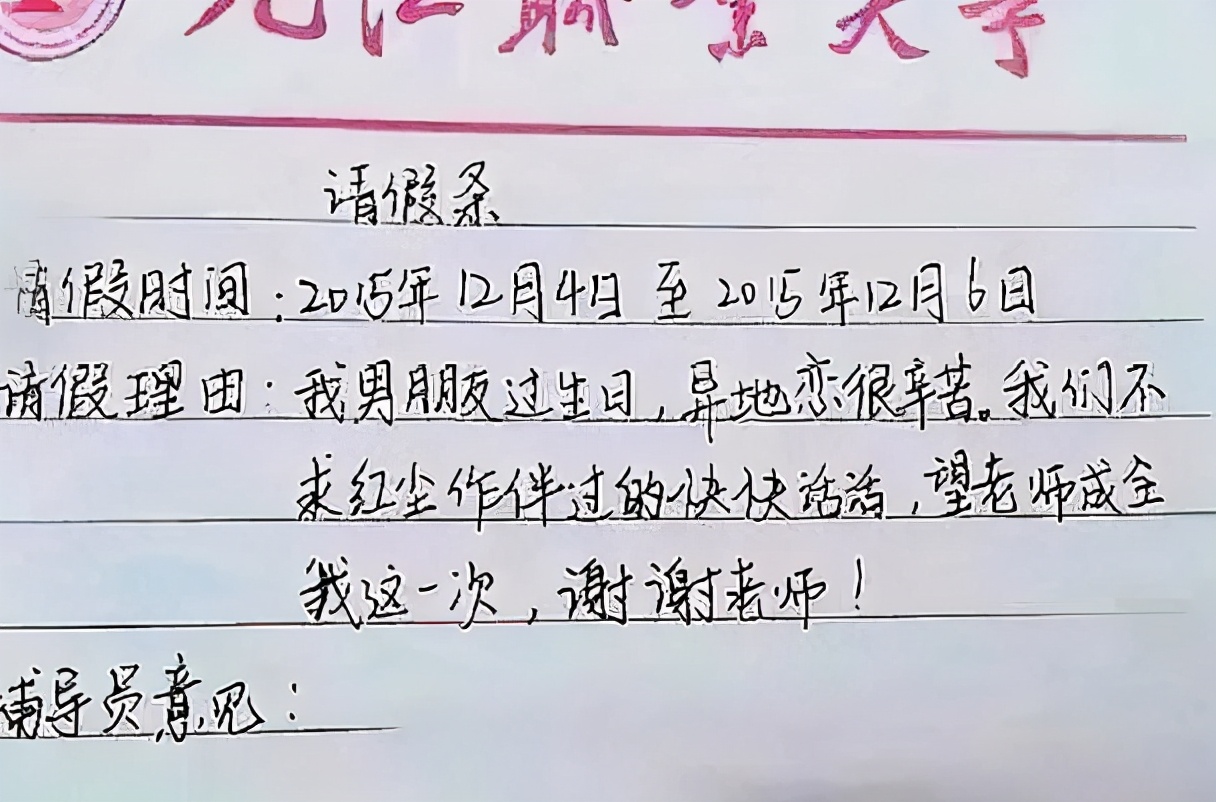 九江职业大学
请假条
请假时间：2015年12月4日 至 2015年12月6日
请假理由：我男朋友过生日，异地恋很辛苦。我们不
求红尘作伴过的快快活活，望老师成全
我这一次，谢谢老师！
辅导员意见：